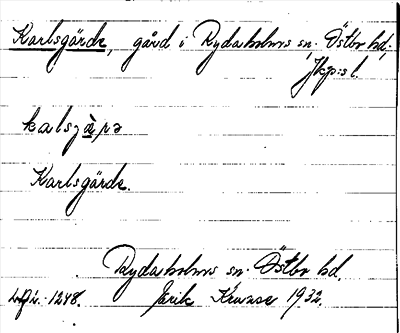 Karlsgärde, gård i Rydaholms sn. Östbo hd.
Jkp:s l.
Karlsgärde.
Rydaholms sn. Östbo hd.
1248. Erik 1932.